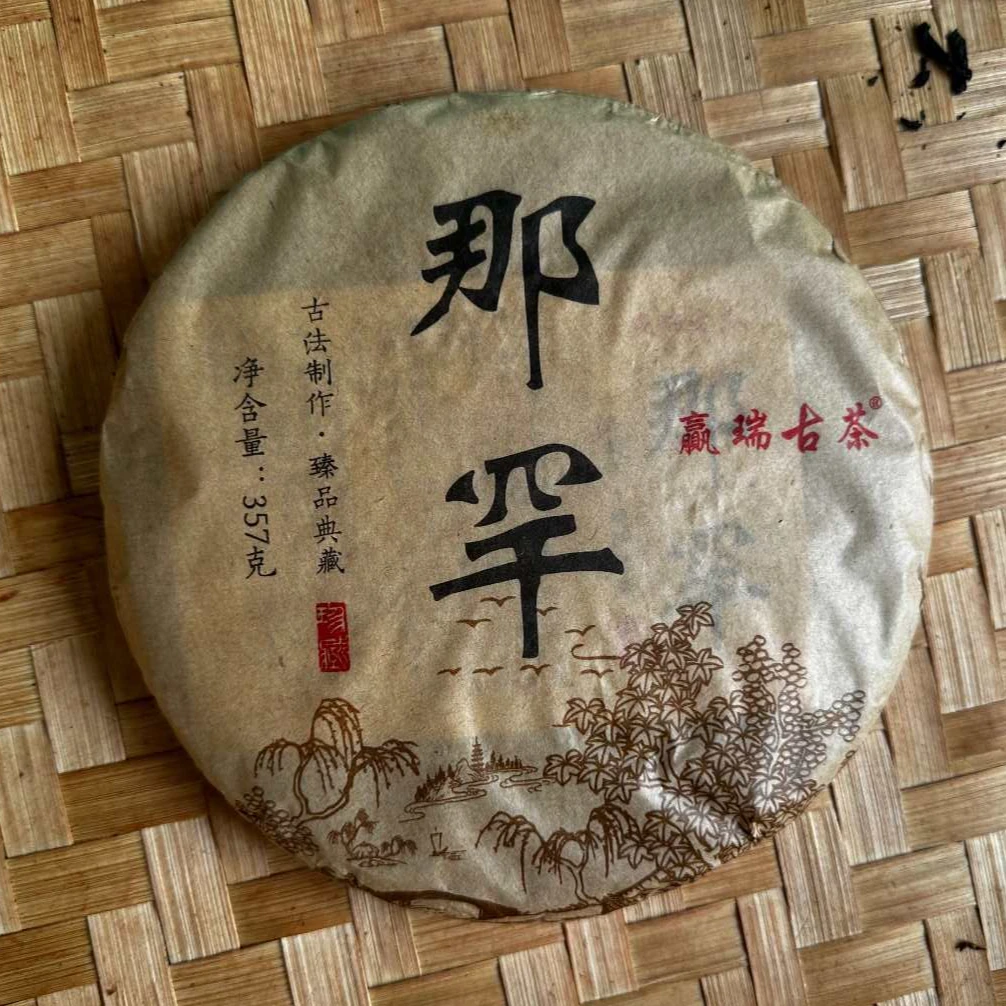 那罕
赢瑞古茶®
古法制作·臻品典藏
净含量：357克
珍藏